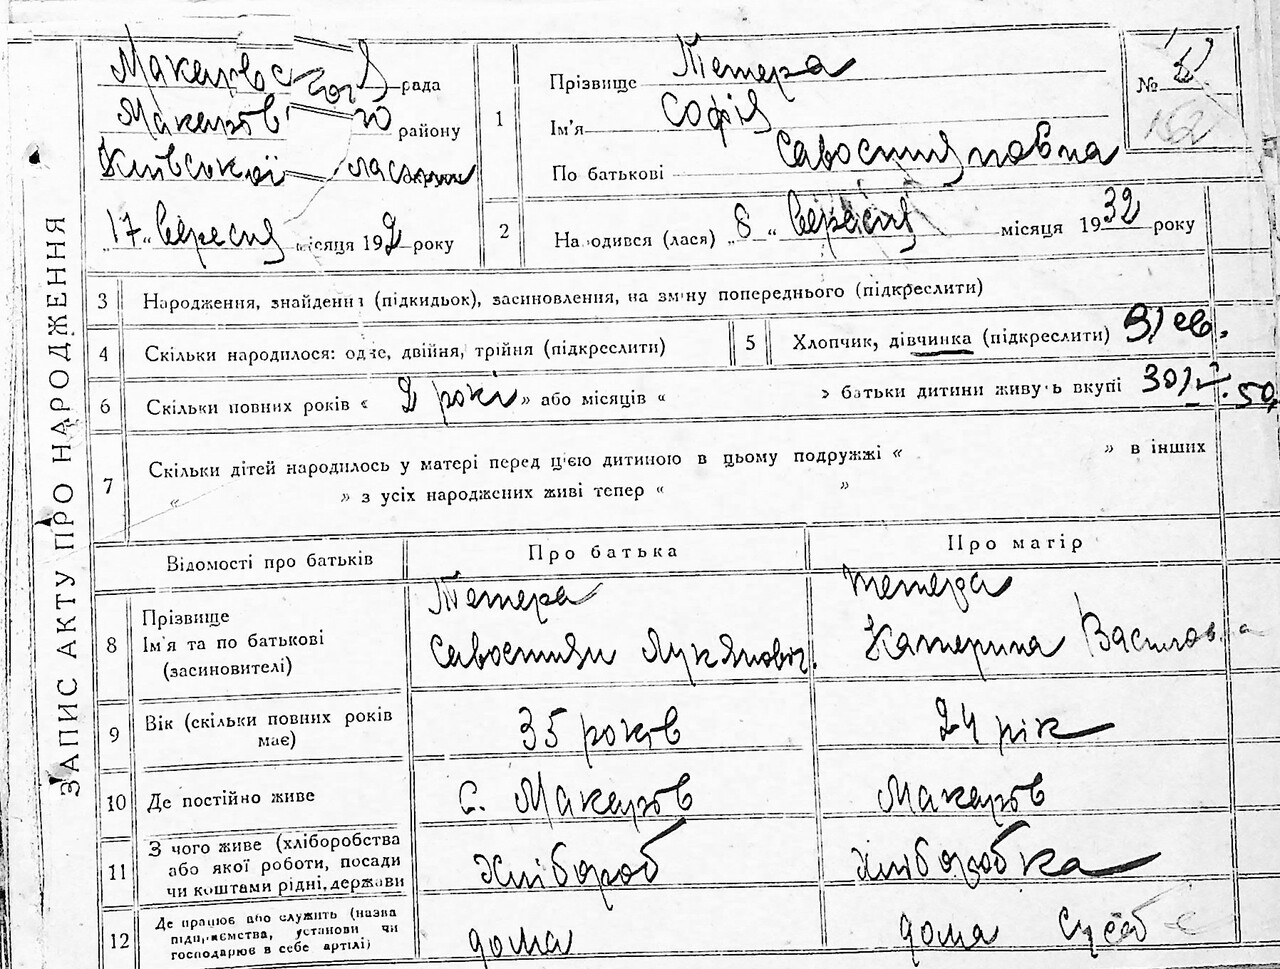 ЗАПИС АКТУ ПРО НАРОДЖЕННЯ
Макарівс рада
Макарів району
Київської
„17„ Вересня місяця 1932 року
1
Прізвище Тетера
Ім'я Софія
По батькові Савостияновна
№
162
2
Народився (лася) „8„ Вересня місяця 1932 року
3 Народження, знайденні (підкидьок), засиновлення, на зміну попереднього (підкреслити)
4 Скільки народилося: одне, двійня, трійня (підкреслити)
5 Хлопчик, дівчинка (підкреслити)
6 Скільки повних років « 2 рокі » або місяців « » батьки дитини живуть вкупі
7 Скільки дітей народилось у матері перед ц'єю дитиною в цьому подружжі « » в інших
« » з усіх народжених живі тепер « »
Відомості про батьків Про батька Про матір
8 Прізвище Ім'я та по батькові (засиновителі)
Тетера Савостиян Лукянович.
Тетера Катерина Василов а
9 Вік (скільки повних років має) 35 років 24 рік
10 Де постійно живе с. Макарів Макарів
11 З чого живе (хліборобства або якої роботи, посади чи коштами рідні, держави Хлібороб Хліборобка
12 Де працює або служить (назва підприємства, установи чи господарює в себе артілі) дома дома